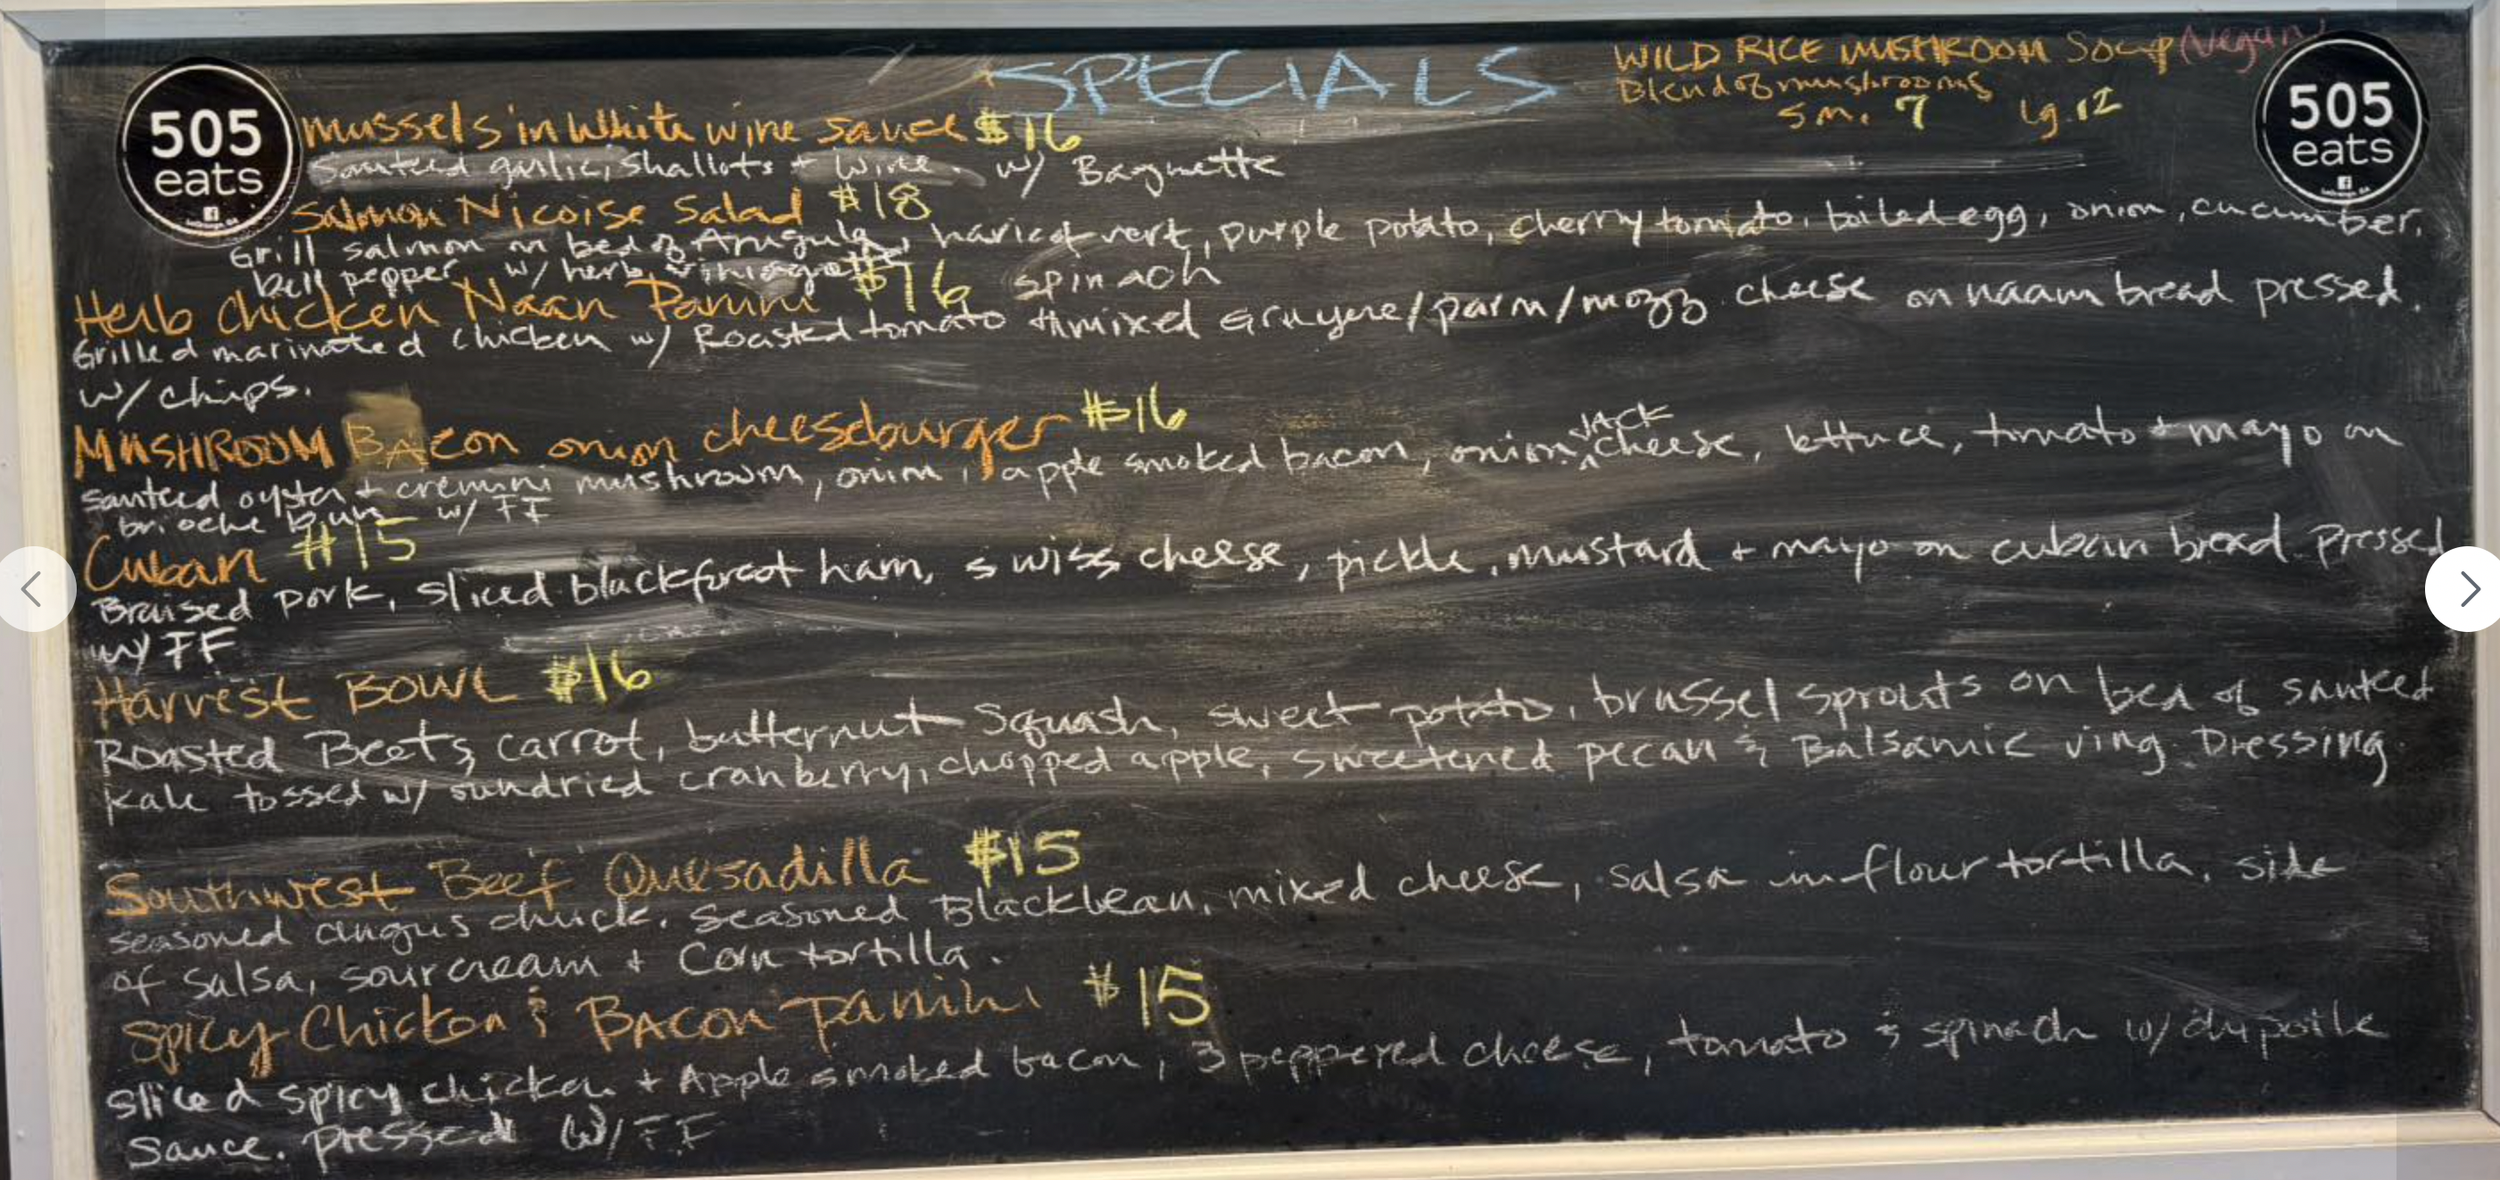 SPECIALS
WILD RICE MUSHROOM Soup (Vegan)
Blend of mushrooms
sm. 7 lg. 12
505
eats
505
eats
mussels in White wine sauce $16
Sauteed garlic, shallots + wine. w/ Baguette
Salmon Nicoise Salad $18
Grill salmon on bed of Arugula, haricot vert, purple potato, cherry tomato, boiled egg, onion, cucumber,
bell pepper w/ herb viniagrette
Herb Chicken Naan Panini $16
spinach
Grilled marinated chicken w/ Roasted tomato + mixed Gruyere/parm/mozz cheese on naam bread pressed.
w/ chips.
MUSHROOM BAcon onion cheeseburger $16
JACK
sauteed oyster + cremini mushroom, onion, apple smoked bacon, onion, cheese, lettuce, tomato + mayo on
brioche bun w/ FF
Cuban $15
Braised pork, sliced blackforest ham, swiss cheese, pickle, mustard + mayo on cuban bread pressed
w/ FF
Harvest BOWL $16
Roasted Beets, carrot, butternut squash, sweet potato, brussel sprouts on bed of sauteed
kale tossed w/ sundried cranberry, chopped apple, sweetened pecan & Balsamic ving. Dressing.
Southwest Beef Quesadilla $15
seasoned angus chuck, seasoned Blackbean, mixed cheese, salsa in flour tortilla, side
of salsa, sourcream + Corn tortilla.
Spicy Chicken & BACON Panini $15
sliced spicy chicken + Apple smoked bacon, 3 peppered cheese, tomato & spinach w/ chipotle
sauce. pressed w/ FF